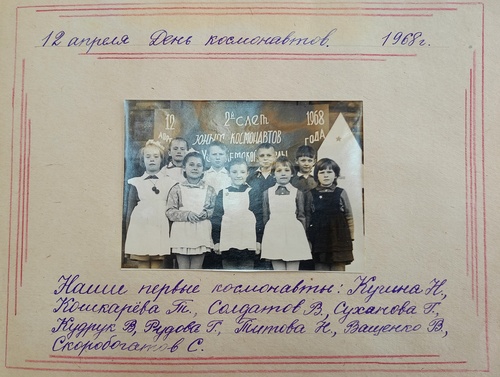 12 апреля День космонавтов. 1968г.
12 2й слёт 1968
юных космонавтов года
Наши первые космонавты: Кугина Н.,
Кошкарёва Т., Солдатов В., Суханова Г.,
Кудрук В, Рудова Г., Титова Н., Ващенко В,
Скоробогатов С.